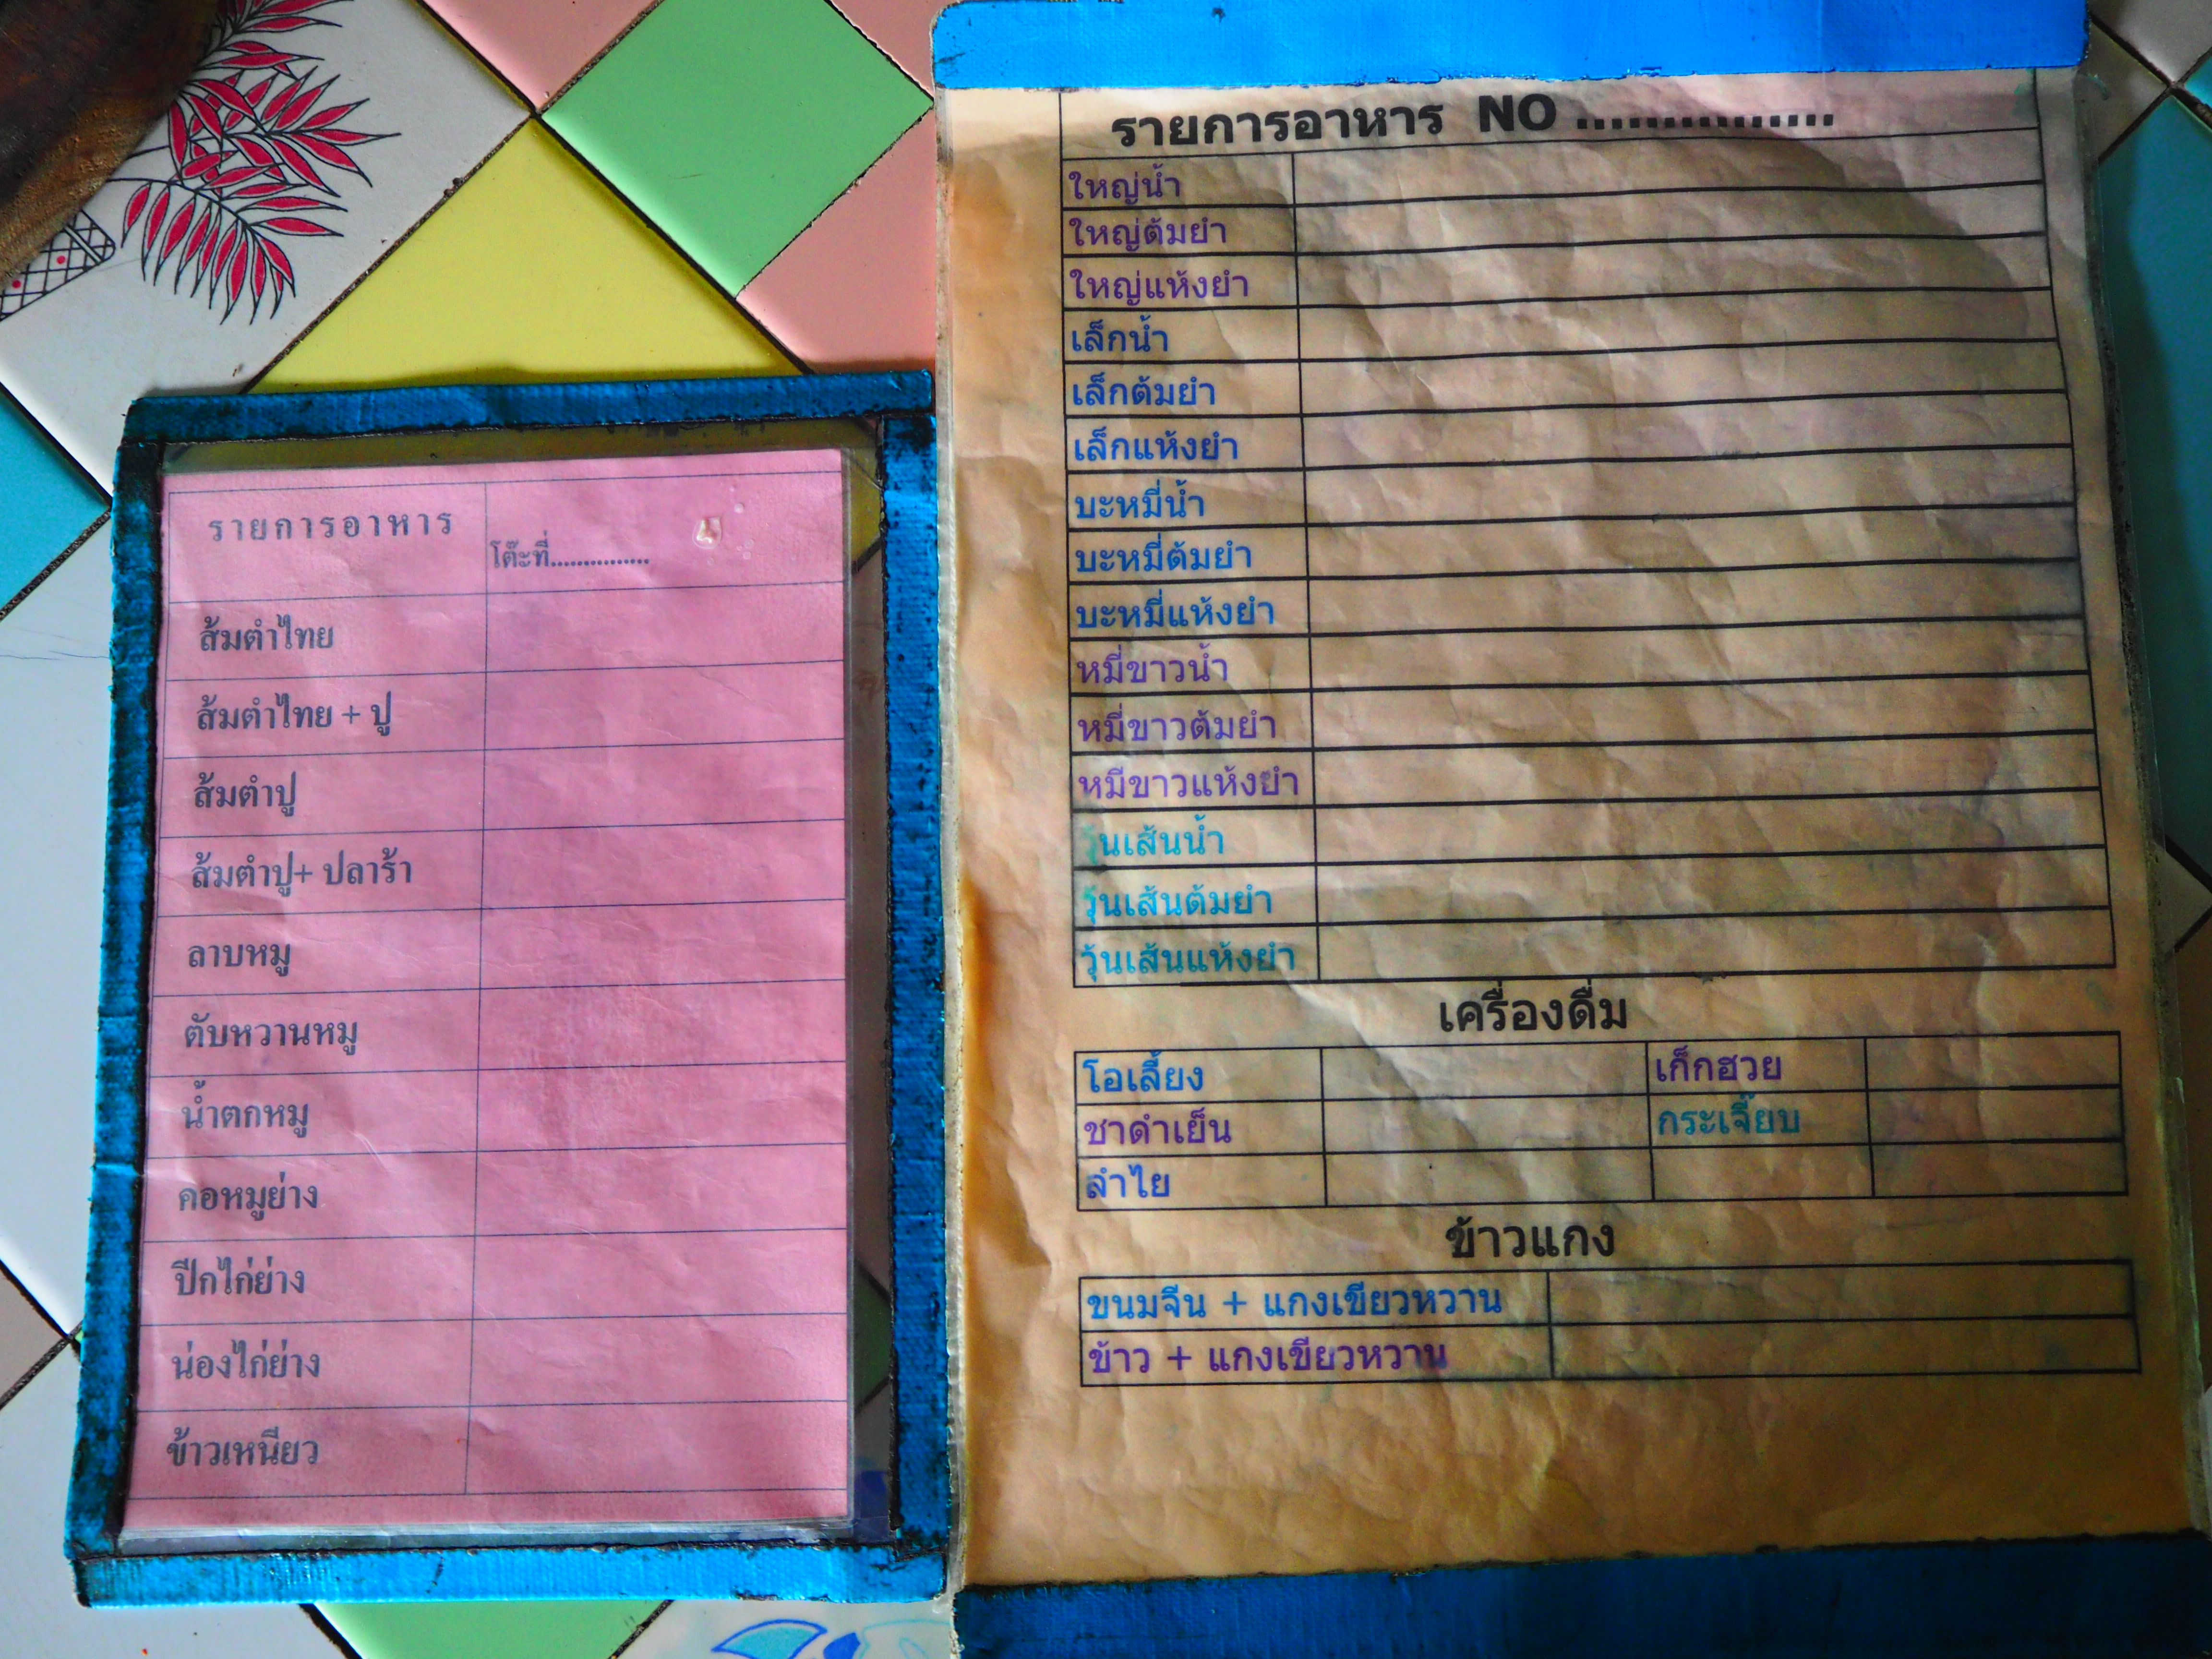 รายการอาหาร
โต๊ะที่...............
ส้มตำไทย
ส้มตำไทย + ปู
ส้มตำปู
ส้มตำปู+ ปลาร้า
ลาบหมู
ตับหวานหมู
น้ำตกหมู
คอหมูย่าง
ปีกไก่ย่าง
น่องไก่ย่าง
ข้าวเหนียว
รายการอาหาร NO ...............
ใหญ่น้ำ
ใหญ่ต้มยำ
ใหญ่แห้งยำ
เล็กน้ำ
เล็กต้มยำ
เล็กแห้งยำ
บะหมี่น้ำ
บะหมี่ต้มยำ
บะหมี่แห้งยำ
หมี่ขาวน้ำ
หมี่ขาวต้มยำ
หมี่ขาวแห้งยำ
วุ้นเส้นน้ำ
วุ้นเส้นต้มยำ
วุ้นเส้นแห้งยำ
เครื่องดื่ม
โอเลี้ยง เก็กฮวย
ชาดำเย็น กระเจี๊ยบ
ลำไย
ข้าวแกง
ขนมจีน + แกงเขียวหวาน
ข้าว + แกงเขียวหวาน